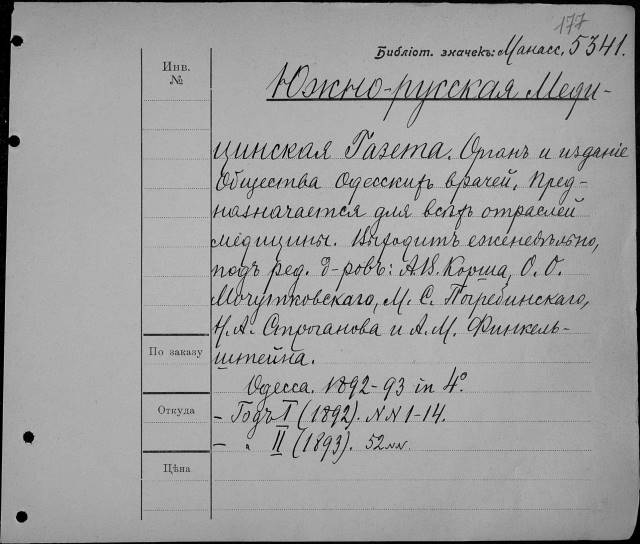 177
Библіот. значекъ: Манасс, 5341.
Инв.
№
Южно-русская Меди-
цинская Газета. Органъ и изданіе
Общества Одесскихъ врачей. Пред-
назначается для всѣхъ отраслей
медицины. Выходитъ еженедѣльно,
подъ ред. д-ровъ: А.В. Корша, О. О.
Мочутковскаго, М. С. Погребинскаго,
Н. А. Строганова и А. М. Финкель-
штейна.
По заказу
Одесса. 1892-93 in 4°.
Откуда
- Годъ I (1892). NN 1-14.
- " II (1893). 52 NN.
Цѣна